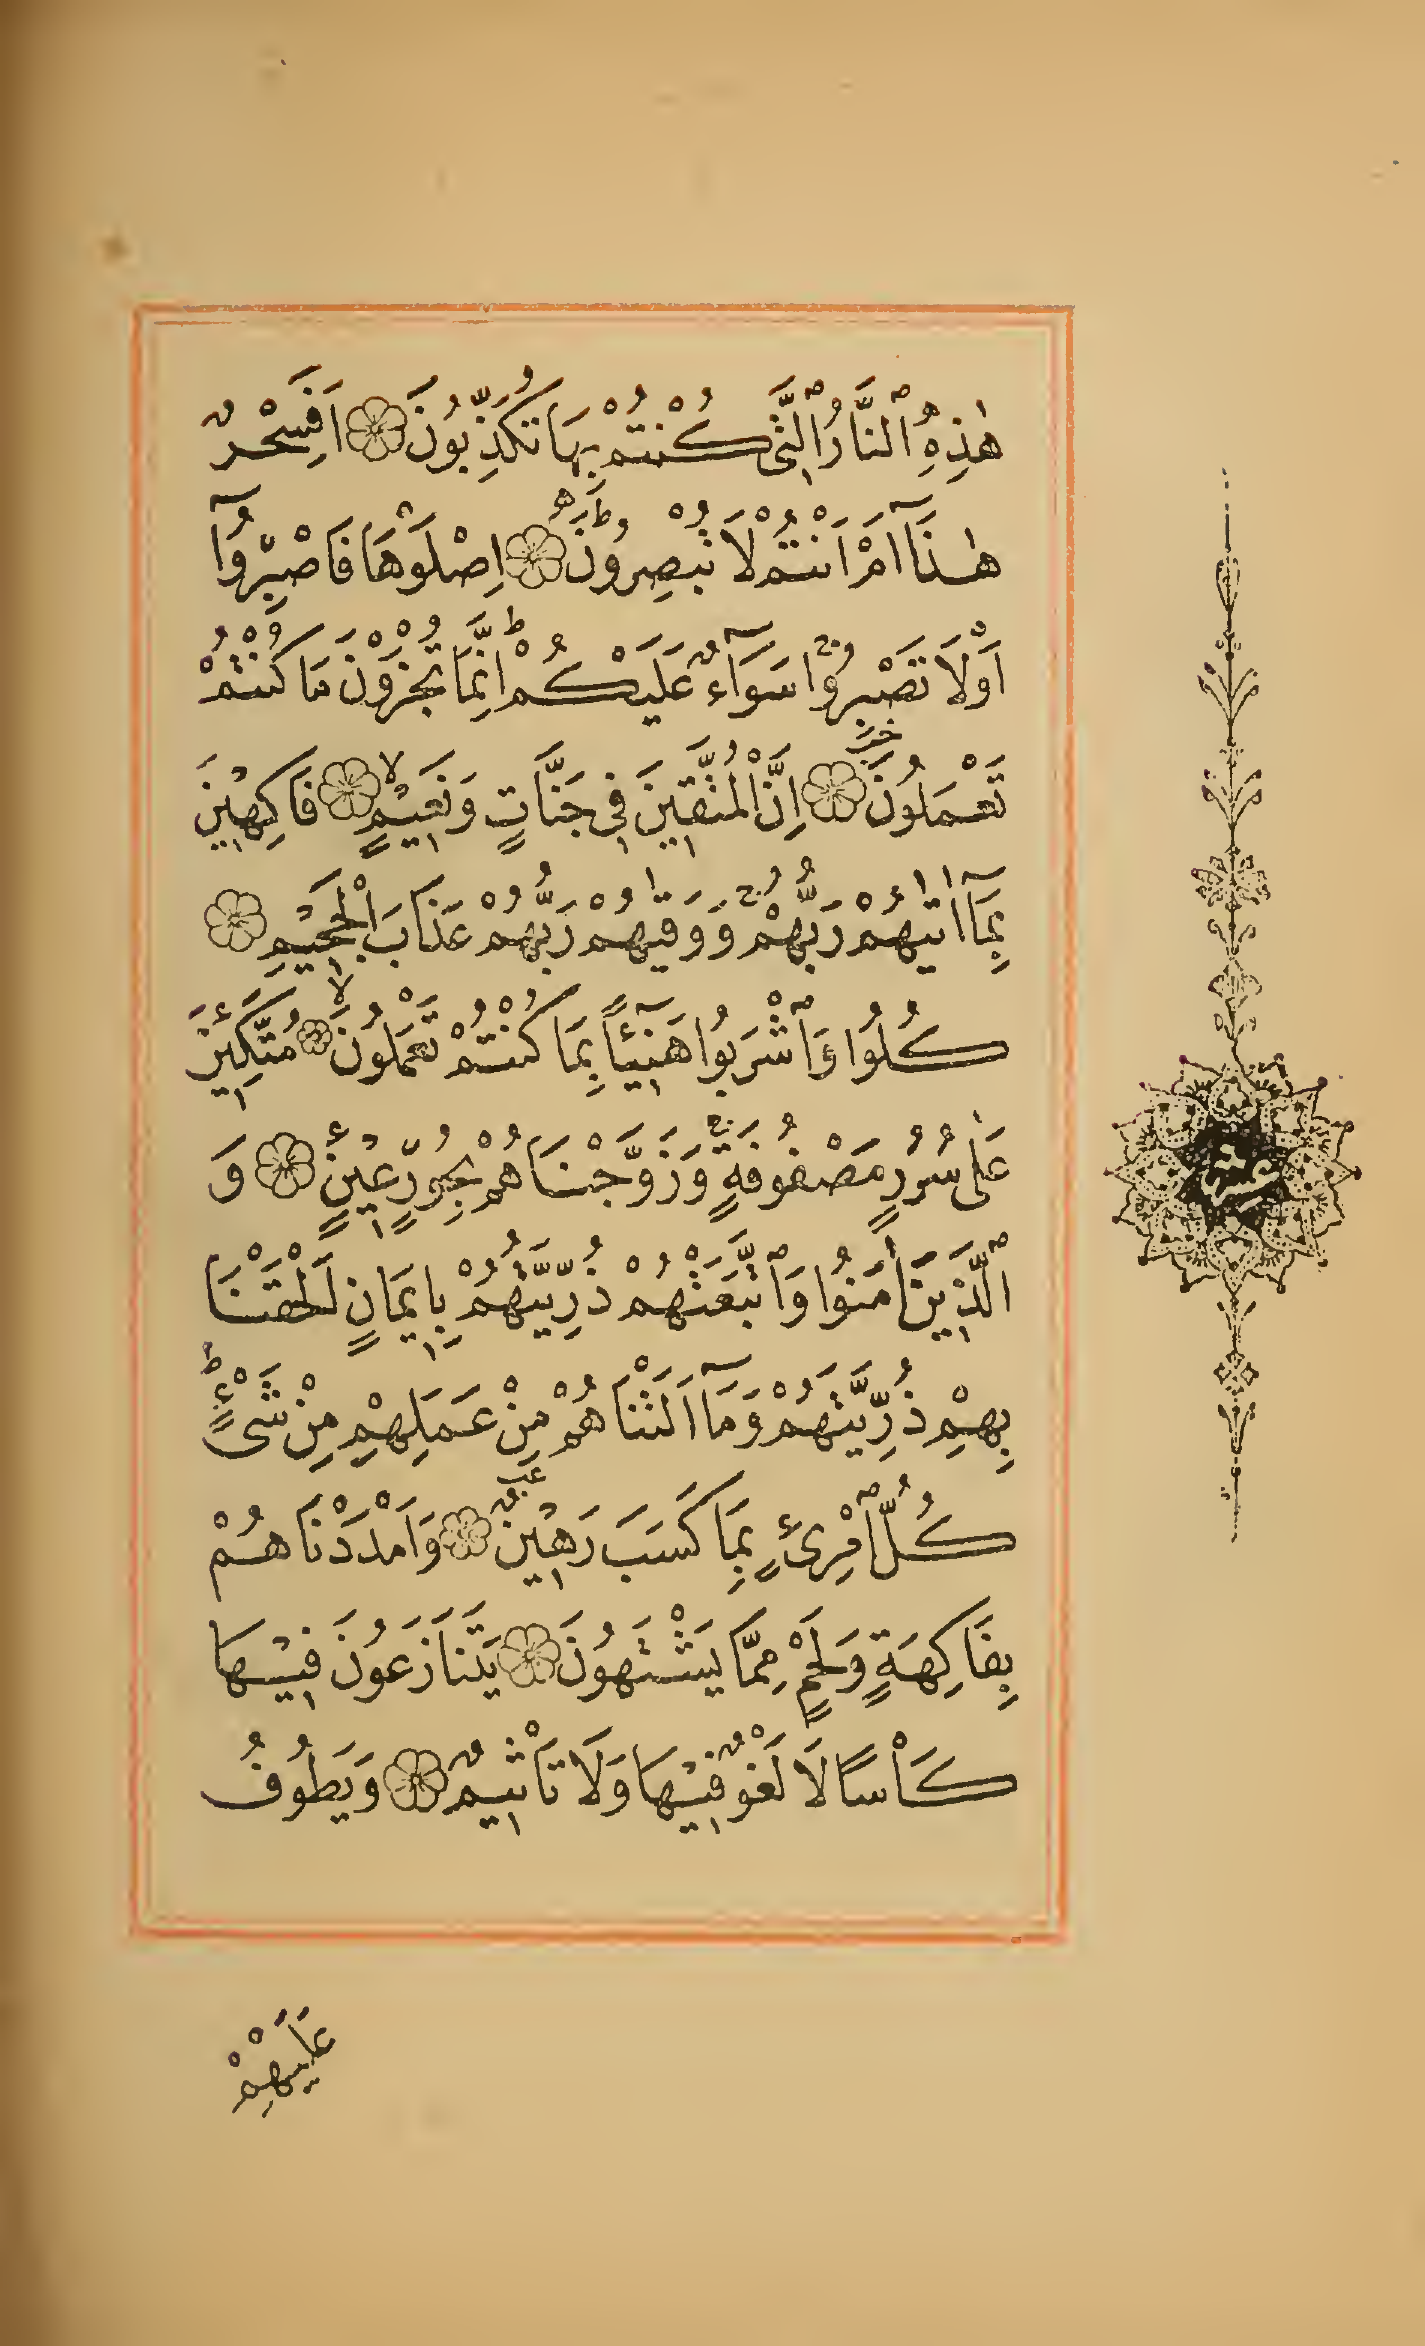 هٰذِهِ ٱلنَّارُ ٱلَّتِى كُنْتُمْ بِهَا تُكَذِّبُونَ ۝ اَفَسِحْرٌ
هٰذَآ اَمْ اَنْتُمْ لَا تُبْصِرُونَ ۝ اِصْلَوْهَا فَاصْبِرُوٓا
اَوْلَا تَصْبِرُوا سَوَآءٌ عَلَيْكُمْ اِنَّمَا تُجْزَوْنَ مَا كُنْتُمْ
تَعْمَلُونَ ۝ اِنَّ ٱلْمُتَّقِينَ فِى جَنَّاتٍ وَنَعِيمٍ ۝ فَاكِهِينَ
بِمَآ اٰتٰيهُمْ رَبُّهُمْ وَوَقٰيهُمْ رَبُّهُمْ عَذَابَ ٱلْجَحِيمِ ۝
كُلُوا وَٱشْرَبُوا هَنِٓيئًا بِمَا كُنْتُمْ تَعْمَلُونَ ۝ مُتَّكِئِينَ
عَلٰى سُرُرٍ مَصْفُوفَةٍ وَزَوَّجْنَاهُمْ بِحُورٍ عِينٍ ۝ وَ
ٱلَّذِينَ اٰمَنُوا وَٱتَّبَعَتْهُمْ ذُرِّيَّتُهُمْ بِاِيمَانٍ اَلْحَقْنَا
بِهِمْ ذُرِّيَّتَهُمْ وَمَآ اَلَتْنَاهُمْ مِنْ عَمَلِهِمْ مِنْ شَىْءٍ
كُلُّ ٱمْرِئٍ بِمَا كَسَبَ رَهِينٌ ۝ وَاَمْدَدْنَاهُمْ
بِفَاكِهَةٍ وَلَحْمٍ مِمَّا يَشْتَهُونَ ۝ يَتَنَازَعُونَ فِيهَا
كَأْسًا لَا لَغْوٌ فِيهَا وَلَا تَأْثِيمٌ ۝ وَيَطُوفُ
عَلَيْهِمْ